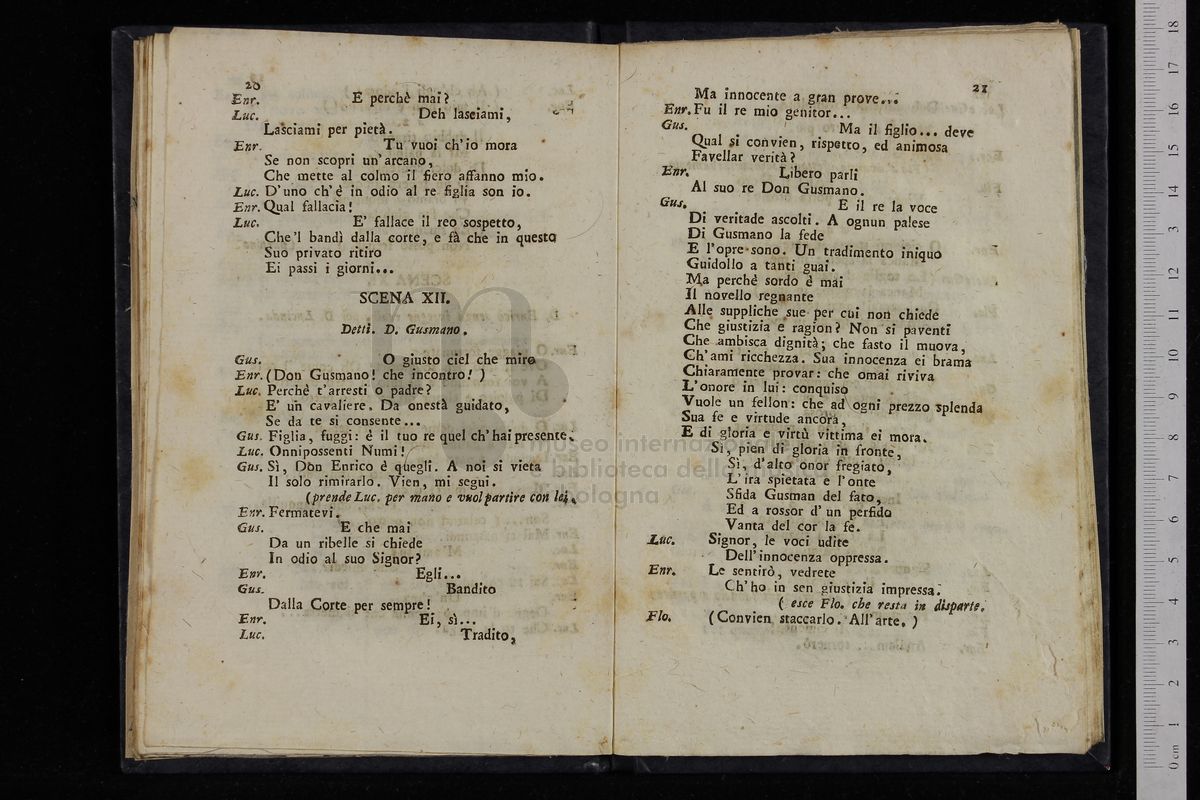 20
Enr. E perchè mai?
Luc. Deh lasciami,
Lasciami per pietà.
Enr. Tu vuoi ch'io mora
Se non scopri un'arcano,
Che mette al colmo il fiero affanno mio.
Luc. D'uno ch'è in odio al re figlia son io.
Enr. Qual fallacia!
Luc. E' fallace il reo sospetto,
Che'l bandì dalla corte, e fà che in questo
Suo privato ritiro
Ei passi i giorni...
SCENA XII.
Detti. D. Gusmano.
Gus. O giusto ciel che miro
Enr. (Don Gusmano! che incontro! )
Luc. Perchè t'arresti o padre?
E' un cavaliere. Da onestà guidato,
Se da te si consente...
Gus. Figlia, fuggi: è il tuo re quel ch'hai presente.
Luc. Onnipossenti Numi!
Gus. Sì, Don Enrico è quegli. A noi si vieta
Il solo rimirarlo. Vien, mi segui.
(prende Luc. per mano e vuol partire con lei.
Enr. Fermatevi.
Gus. E che mai
Da un ribelle si chiede
In odio al suo Signor?
Enr. Egli...
Gus. Bandito
Dalla Corte per sempre!
Enr. Ei, sì...
Luc. Tradito,
21
Ma innocente a gran prove...
Enr. Fu il re mio genitor...
Gus. Ma il figlio... deve
Qual si convien, rispetto, ed animosa
Favellar verità?
Enr. Libero parli
Al suo re Don Gusmano.
Gus. E il re la voce
Di veritade ascolti. A ognun palese
Di Gusmano la fede
E l'opre sono. Un tradimento iniquo
Guidollo a tanti guai.
Ma perchè sordo è mai
Il novello regnante
Alle suppliche sue per cui non chiede
Che giustizia e ragion? Non si paventi
Che ambisca dignità; che fasto il muova,
Ch'ami ricchezza. Sua innocenza ei brama
Chiaramente provar: che omai riviva
L'onore in lui: conquiso
Vuole un fellon: che ad ogni prezzo splenda
Sua fe e virtude ancora,
E di gloria e virtù vittima ei mora.
Sì, pien di gloria in fronte,
Sì, d'alto onor fregiato,
L'ira spietata e l'onte
Sfida Gusman del fato,
Ed a rossor d'un perfido
Vanta del cor la fe.
Luc. Signor, le voci udite
Dell'innocenza oppressa.
Enr. Le sentirò, vedrete
Ch'ho in sen giustizia impressa.
( esce Flo. che resta in disparte.
Flo. (Convien staccarlo. All'arte. )
museo internazionale
e biblioteca della musica
di bologna